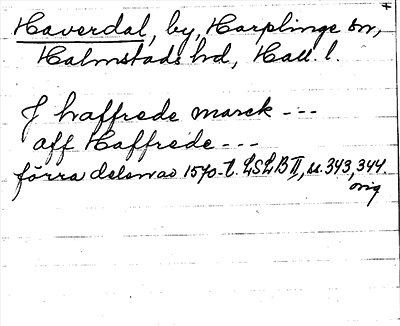 Haverdal, by, Harplinge sn,
Halmstads hd, Hall. l.
J haffrede marck ---
aff Haffrede ---
förra delen av 1570-t. LSLB II, s. 343, 344.
orig